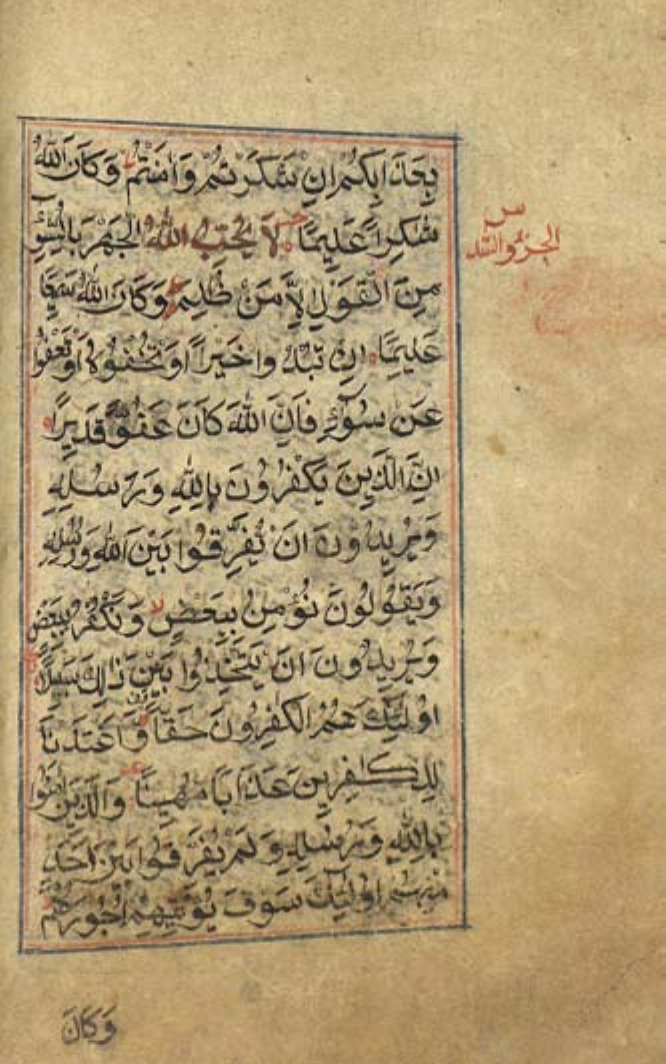 بِعَذَابِكُمْ اِنْ شَكَرْتُمْ وَاٰمَنْتُمْ وَكَانَ اللهُ
شَكِرًا عَلِيمًا لَا يُحِبُّ اللهُ الْجَهْرَ بِالسُّوٓءِ
مِنَ الْقَوْلِ اِلَّا مَنْ ظُلِمَ وَكَانَ اللهُ سَمِيعًا
عَلِيمًا اِنْ تُبْدُوا خَيْرًا اَوْ تُخْفُوهُ اَوْ تَعْفُوا
عَنْ سُوٓءٍ فَاِنَّ اللهَ كَانَ عَفُوًّا قَدِيرًا
اِنَّ الَّذِينَ يَكْفُرُونَ بِاللهِ وَرُسُلِهِ
وَيُرِيدُونَ اَنْ يُفَرِّقُوا بَيْنَ اللهِ وَرُسُلِهِ
وَيَقُولُونَ نُؤْمِنُ بِبَعْضٍ وَنَكْفُرُ بِبَعْضٍ
وَيُرِيدُونَ اَنْ يَتَّخِذُوا بَيْنَ ذَالِكَ سَبِيلًا
اُولٰٓئِكَ هُمُ الْكٰفِرُونَ حَقًّا وَاَعْتَدْنَا
لِلْكٰفِرِينَ عَذَابًا مُهِينًا وَالَّذِينَ اٰمَنُوا
بِاللهِ وَرُسُلِهِ وَلَمْ يُفَرِّقُوا بَيْنَ اَحَدٍ
مِنْهُمْ اُولٰٓئِكَ سَوْفَ يُؤْتِيهِمْ اُجُورَهُمْ
وَكَانَ